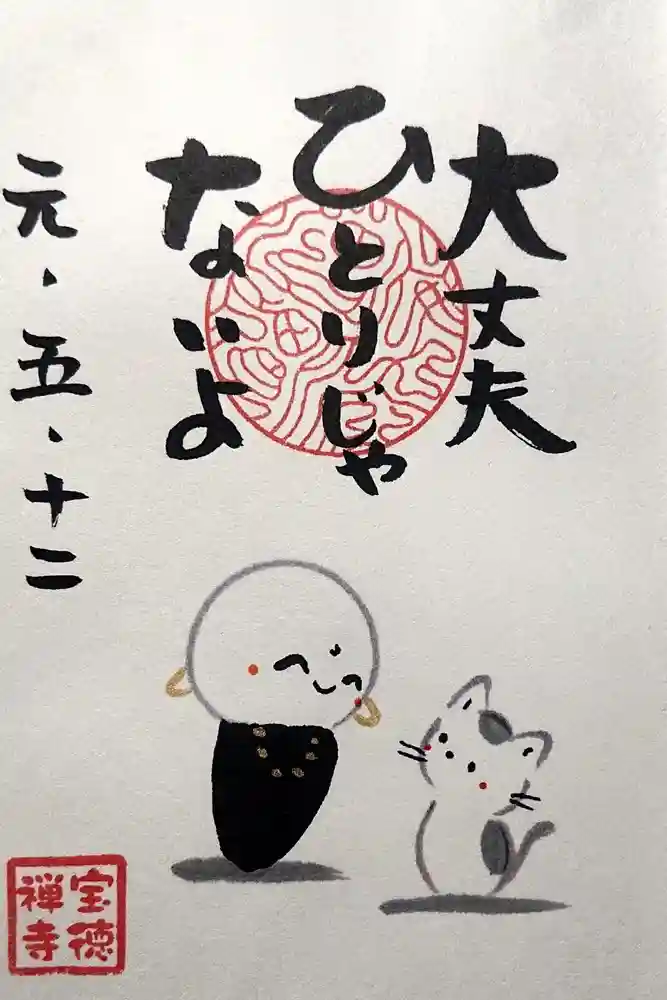 大丈夫
ひとりじゃ
ないよ
元、五、十二
宝徳
禅寺